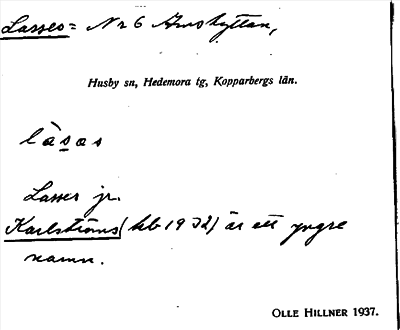 Lasses = Nr 6 Amshyttan,
Husby sn, Hedemora tg, Kopparbergs län.
làsas
Lasses jr.
Karlströms (kb 1932) är ett yngre
namn.
OLLE HILLNER 1937.